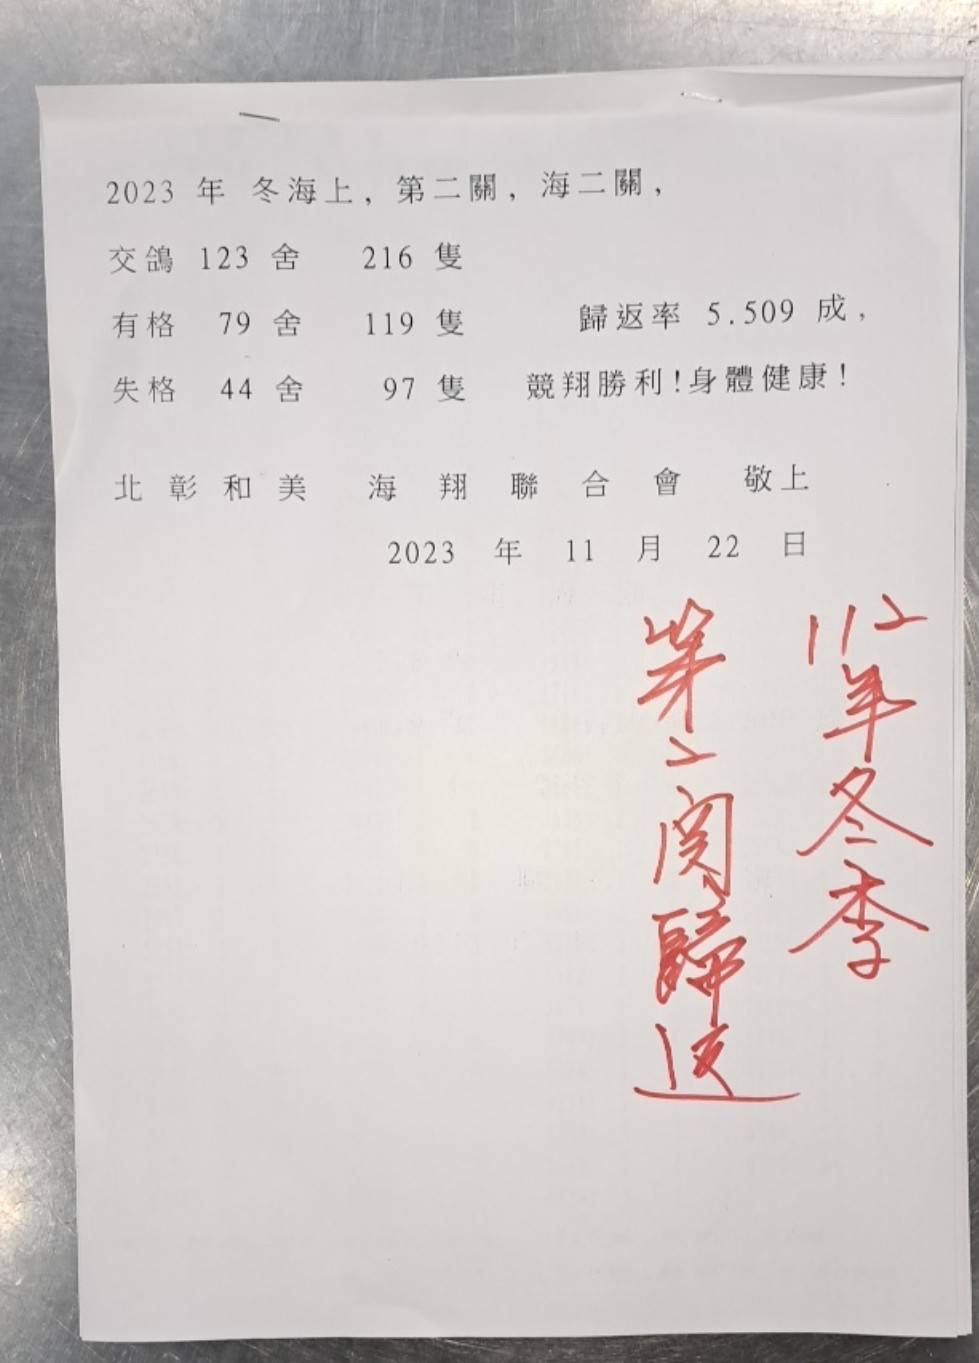 2023 年 冬海上, 第二關, 海二關,
交鴿 123 舍 216 隻
有格 79 舍 119 隻 歸返率 5.509 成,
失格 44 舍 97 隻 競翔勝利!身體健康!
北 彰 和 美 海 翔 聯 合 會 敬上
2023 年 11 月 22 日
112年冬季
第2関歸返